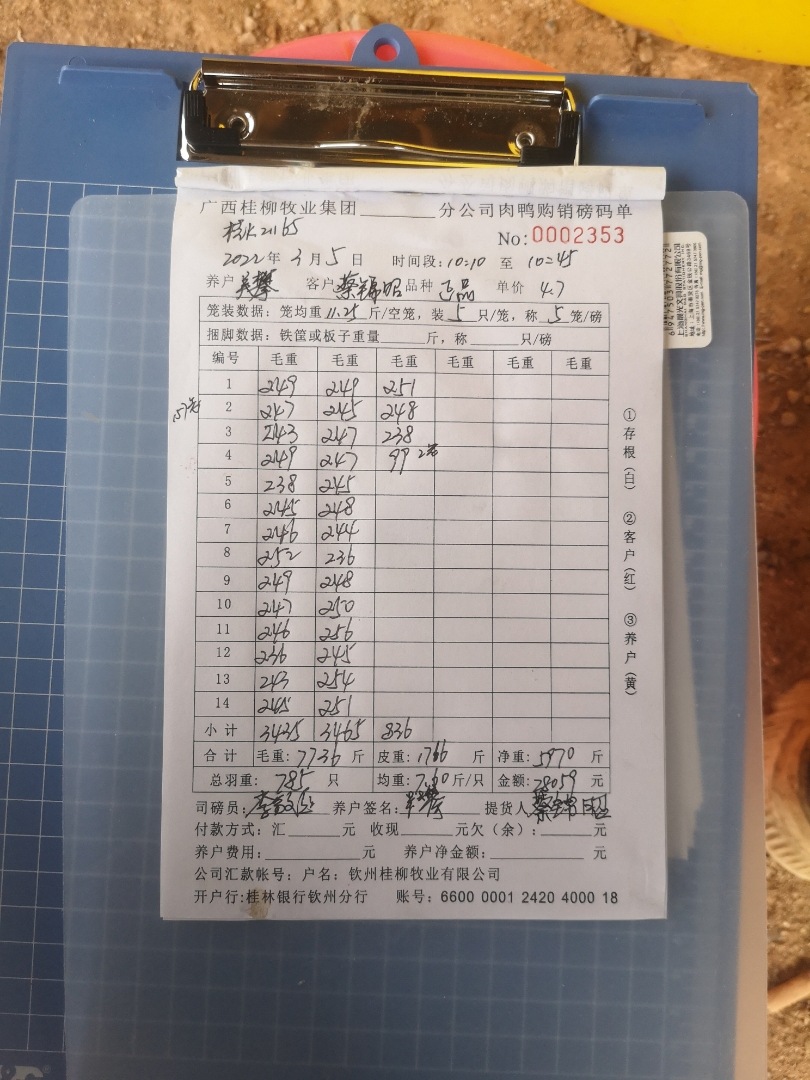 广西桂柳牧业集团________分公司肉鸭购销磅码单
21165
No:0002353
2022年3月5日 时间段:10:10 至 10:45
养户 客户 蔡锦昭 品种 正品 单价 4.7
笼装数据:笼均重11.25斤/空笼,装5只/笼,称5笼/磅
捆脚数据:铁筐或板子重量____斤,称____只/磅
编号 毛重 毛重 毛重 毛重 毛重 毛重
1 249 249 251
2 247 245 248
3 243 247 238
4 249 247 99 2笼
5 238 245
6 245 248
7 246 244
8 252 236
9 249 248
10 247 250
11 246 256
12 236 245
13 243 254
14 245 251
157笼
小计 3435 3465 836
合计 毛重:7736斤 皮重:1766斤 净重:5970斤
总羽重:785只 均重:7.60斤/只 金额:28059元
司磅员: 养户签名: 提货人 蔡锦昭
付款方式:汇______元 收现______元欠(余):______元
养户费用:__________元 养户净金额:__________元
公司汇款帐号:户名:钦州桂柳牧业有限公司
开户行:桂林银行钦州分行 账号:6600 0001 2420 4000 18
①存根(白) ②客户(红) ③养户(黄)